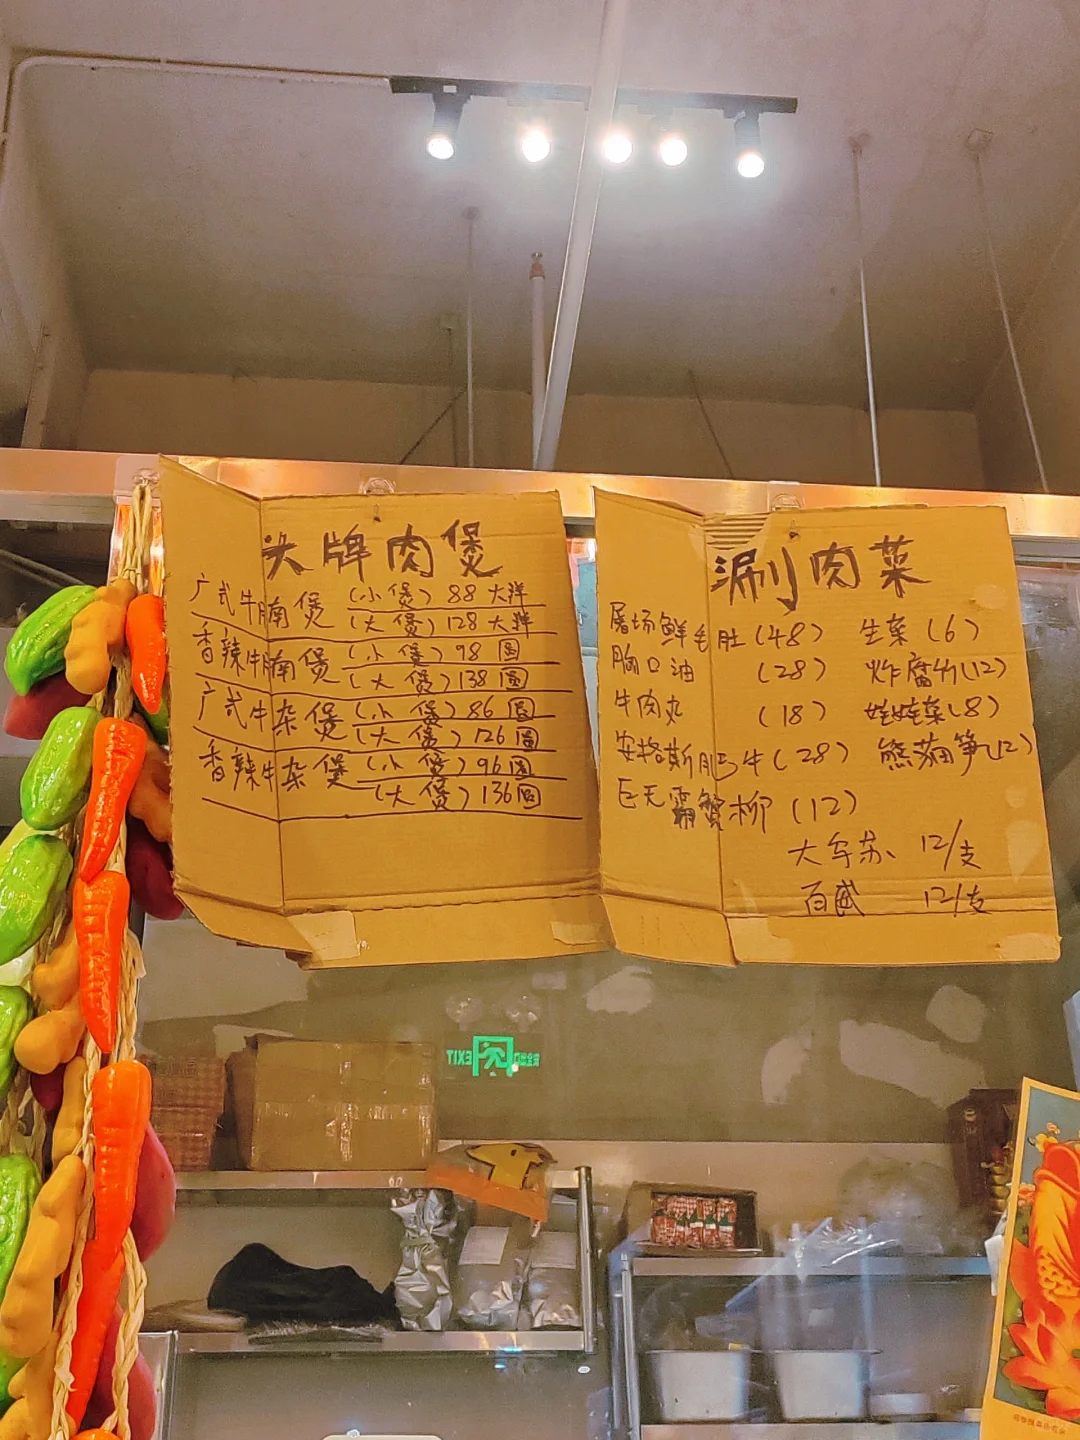 头牌肉煲
广式牛腩煲 (小煲) 88 大洋
(大煲) 128 大洋
香辣牛腩煲 (小煲) 98 圆
(大煲) 138 圆
广式牛杂煲 (小煲) 86 圆
(大煲) 126 圆
香辣牛杂煲 (小煲) 96 圆
(大煲) 136 圆
涮肉菜
屠场鲜毛肚(48) 生菜(6)
胸口油 (28) 炸腐竹(12)
牛肉丸 (18) 娃娃菜(8)
安格斯肥牛(28) 熊猫笋(12)
巨无霸蟹柳 (12)
大午苏、 12/支
百威 12/支
EXIT